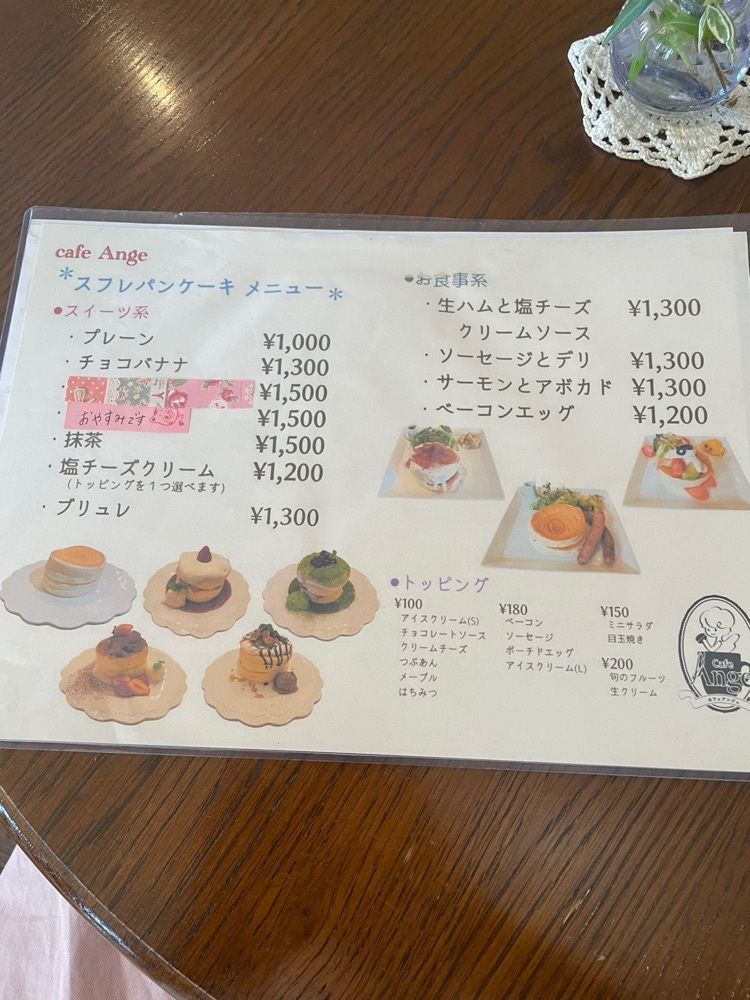 cafe Ange
*スフレパンケーキ メニュー*
●スイーツ系
・プレーン ¥1,000
・チョコバナナ ¥1,300
・ ¥1,500
・おやすみです ¥1,500
・抹茶 ¥1,500
・塩チーズクリーム ¥1,200
(トッピングを1つ選べます)
・ブリュレ ¥1,300
●お食事系
・生ハムと塩チーズ ¥1,300
クリームソース
・ソーセージとデリ ¥1,300
・サーモンとアボカド ¥1,300
・ベーコンエッグ ¥1,200
●トッピング
¥100
アイスクリーム(S)
チョコレートソース
クリームチーズ
つぶあん
メープル
はちみつ
¥180
ベーコン
ソーセージ
ポーチドエッグ
アイスクリーム(L)
¥150
ミニサラダ
目玉焼き
¥200
旬のフルーツ
生クリーム
Cafe
Ange